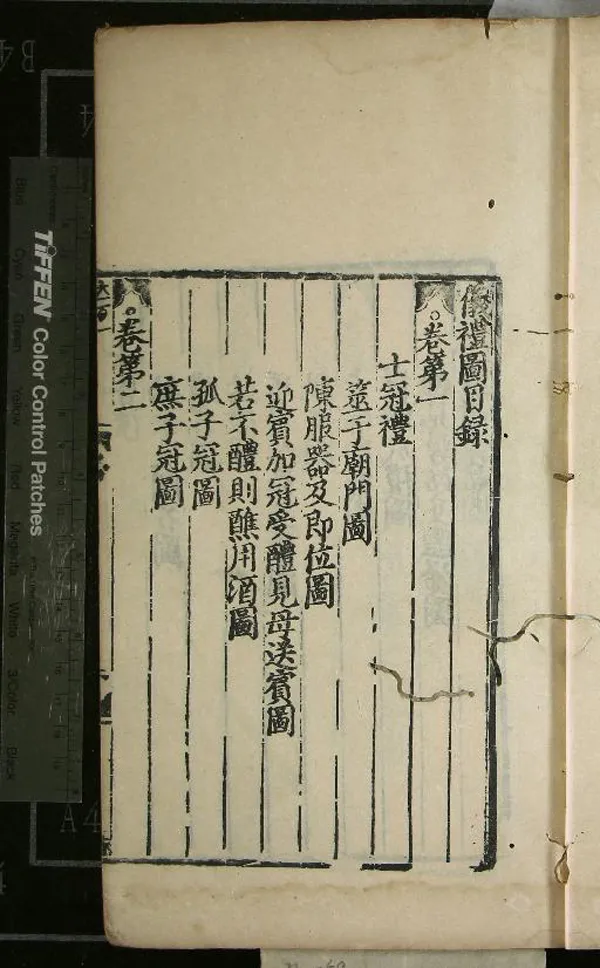 儀禮圖目録
卷第一
士冠禮
筮于廟門圖
陳服器及即位圖
迎賓加冠受醴見母送賓圖
若不醴則醮用酒圖
孤子冠圖
庶子冠圖
卷第二
TIFFEN Color Control Patches
Blue
Cyan
Green
Yellow
Red
Magenta
White
3/Color
Black